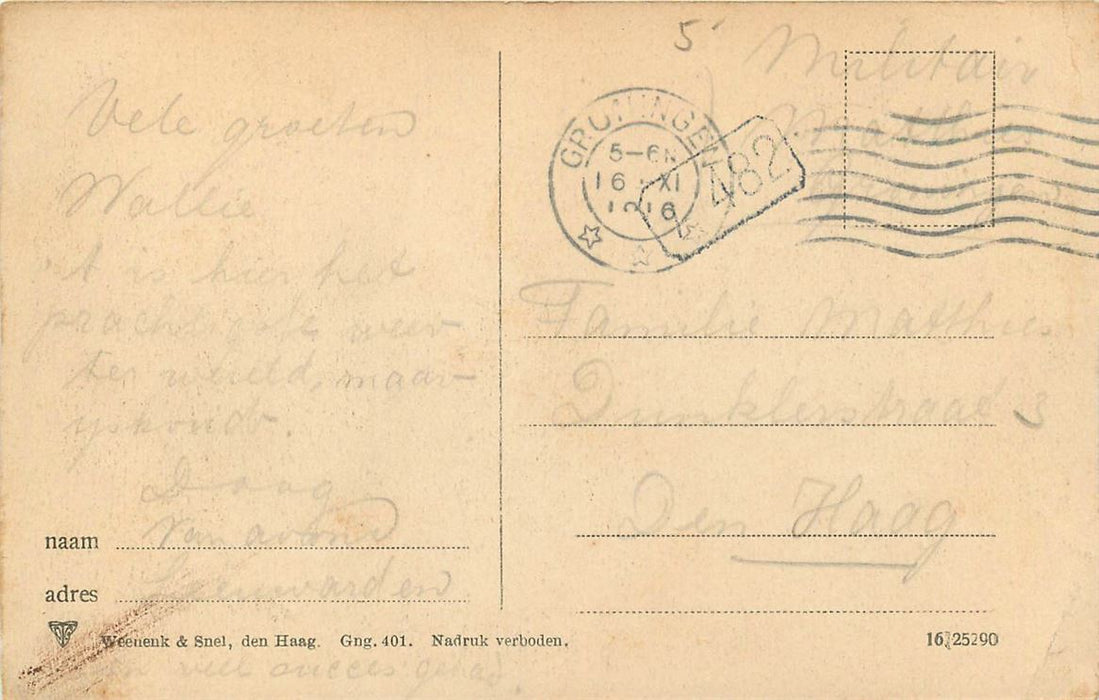 Vele groeten
Wallie
't is hier het
prachtigste weer
ter wereld, maar
yskoudt.
Daag
Van avond
Leeuwarden
en veel succes gehad.
naam
adres
Weenenk & Snel, den Haag. Gng. 401. Nadruk verboden.
5
Militair
Matthies
Groningen
GRONINGEN
5-6N
16 XI
1916
482
Familie Matthies
Dunklerstraat 3
Den Haag
16,25290